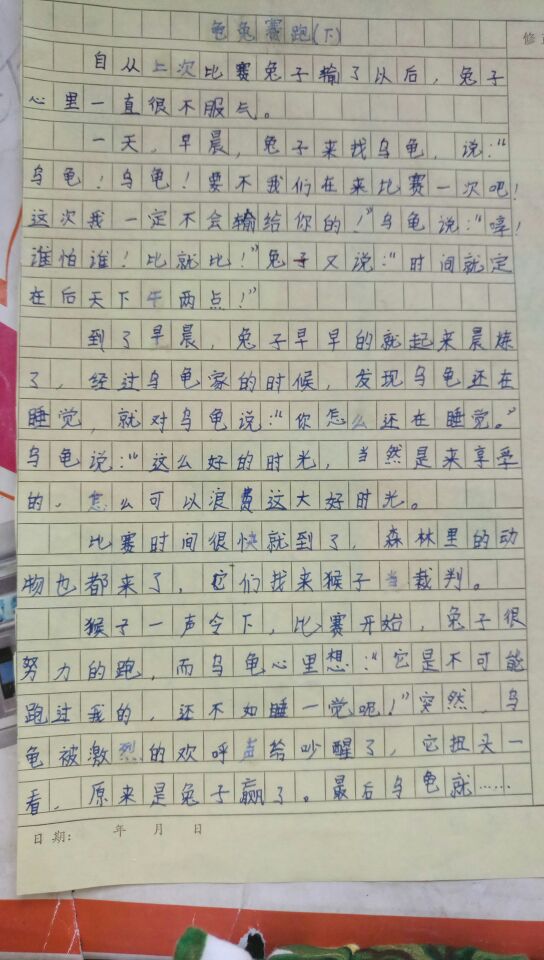 龟兔赛跑(下)
修
自从上次比赛兔子输了以后，兔子
心里一直很不服气。
一天，早晨，兔子来找乌龟，说：“
乌龟！乌龟！要不我们在来比赛一次吧！
这次我一定不会输给你的！”乌龟说：“哼！
谁怕谁！比就比！”兔子又说：“时间就定
在后天下午两点！”
到了早晨，兔子早早的就起来晨炼
了，经过乌龟家的时候，发现乌龟还在
睡觉，就对乌龟说：“你怎么还在睡觉。”
乌龟说：“这么好的时光，当然是来享受
的、怎么可以浪费这大好时光。
比赛时间很快就到了，森林里的动
物也都来了，它们找来猴子当裁判。
猴子一声令下，比赛开始，兔子很
努力的跑，而乌龟心里想：“它是不可能
跑过我的，还不如睡一觉呢！”突然，乌
龟被激烈的欢呼声给吵醒了，它扭头一
看，原来是兔子赢了。最后乌龟就……
日期： 年 月 日